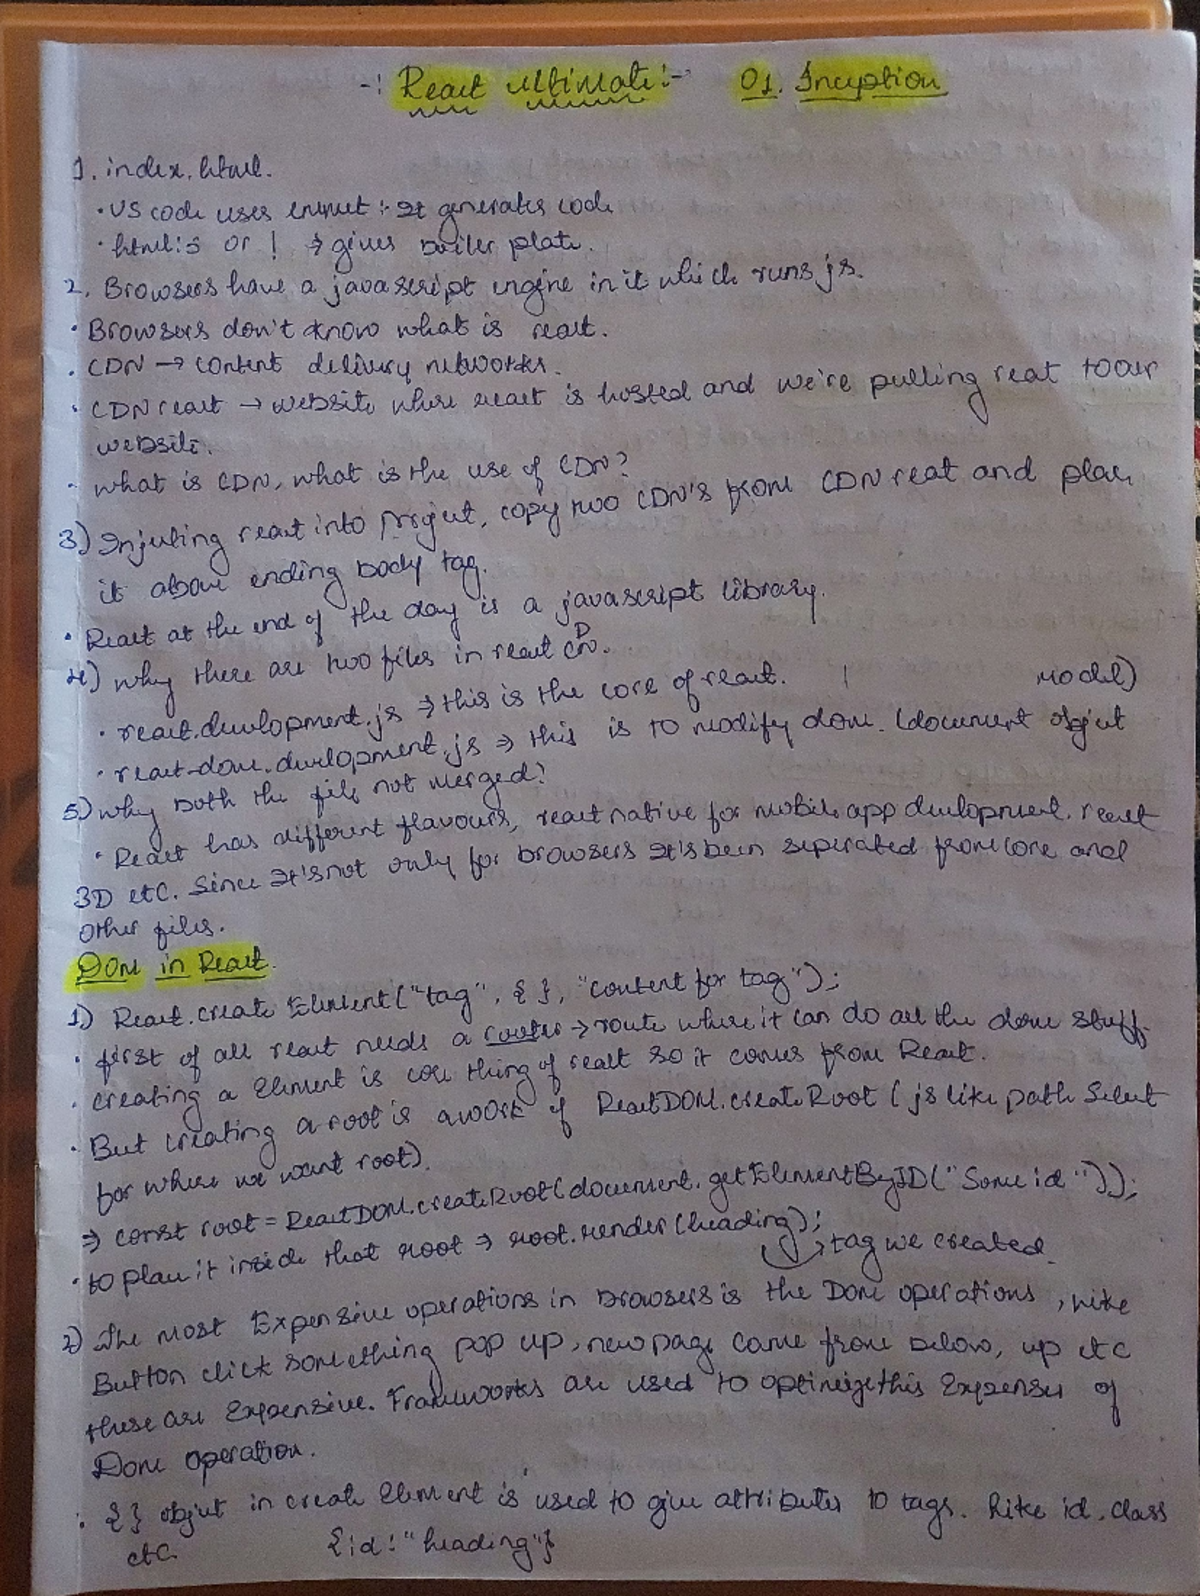 -: React Ultimate:- 01. Inception
1. index.html.
· VS code uses emmet :- It generates code
· html:5 or ! → gives boiler plate.
2. Browsers have a javascript engine in it which runs js.
· Browsers don't know what is react.
· CDN → content delivery networks.
· CDN react → website where react is hosted and we're pulling reat to our
website.
· what is CDN, what is the use of CDN?
3) Injecting react into project, copy two CDN's from CDN reat and place
it above ending body tag.
· React at the end of the day is a javascript library.
4) why there are two files in react CDN.
· react.development.js ⇒ this is the core of react.
· react-dom.development.js ⇒ this is to modify dom. (document object model)
5) why both the file not merged?
· React has different flavours, react native for mobile app development, react
3D etc. Since It's not only for browsers It's been seperated from core and
other files.
DOM in React.
1) React.create Element("tag", { }, "content for tag");
· first of all react needs a router → route where it can do all the dom stuff.
· creating a Element is core thing of react so it comes from React.
· But creating a root is a work of ReactDOM.createRoot (js like path Select
for where we want root).
⇒ const root = ReactDOM.createRoot(document.getElementByID("Some id"));
· to place it inside that root ⇒ root.render(heading); → tag we created.
2) The most Expensive operations in browsers is the Dom operations, like
Button click something pop up, new page came from below, up etc
these are Expensive. Frameworks are used to optimize this Expenses of
Dom operation.
: { } object in create Element is used to give attributes to tags. Like id, class
etc {id: "heading"}